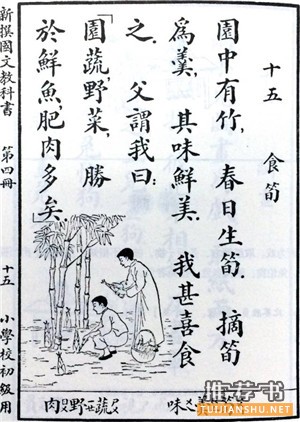 十五　食筍
園中有竹，春日生筍。摘筍
爲羹，其味鮮美。我甚喜食
之。父謂我曰：
「園蔬，野菜，勝
於鮮魚，肥肉多矣。」
味
蔬ㄕㄨ野ㄧㄝ肉ㄖㄡ
新撰國文教科書　第四冊　十五　小學校初級用
推荐书
TUIJIANSHU.NET